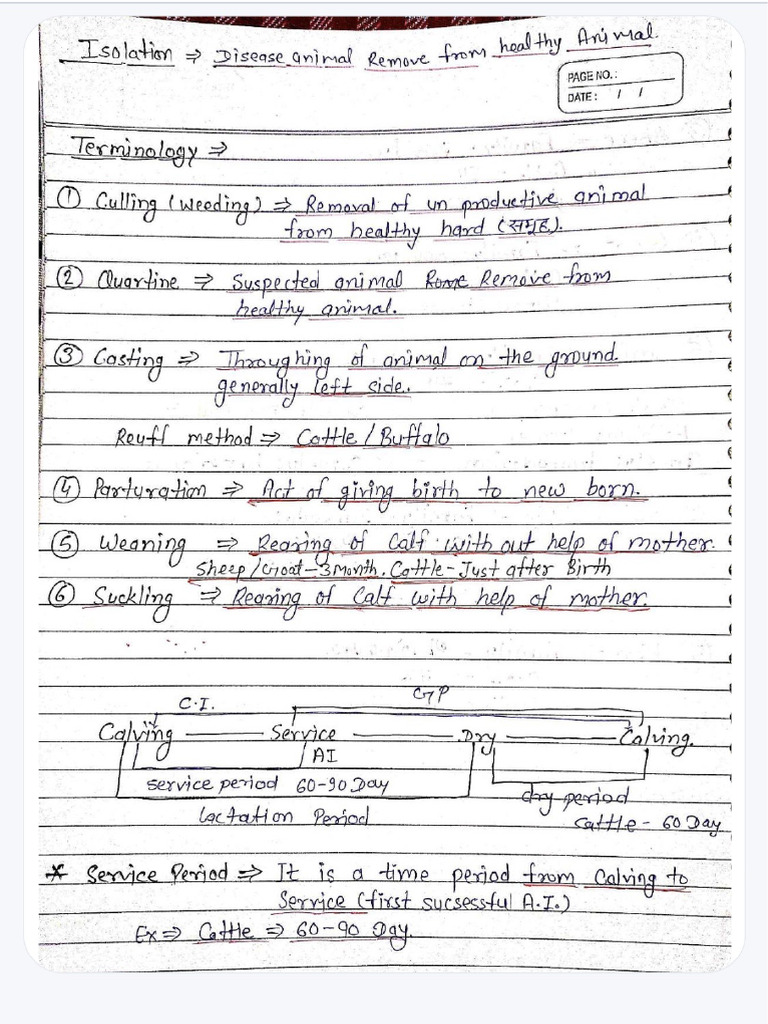 Isolation ⇒ Disease animal Remove from healthy Animal.
PAGE NO.:
DATE: / /
Terminology ⇒
① Culling (Weeding) ⇒ Removal of un productive animal
from healthy hard (समूह).
② Quartine ⇒ Suspected animal Rome Remove from
healthy animal.
③ Casting ⇒ Throughing of animal on the ground.
generally left side.
Reuff method ⇒ Cattle / Buffalo
④ Parturation ⇒ Act of giving birth to new born.
⑤ Weaning ⇒ Rearing of Calf with out help of mother.
Sheep/Goat - 3 Month. Cattle - Just after Birth
⑥ Suckling ⇒ Rearing of Calf with help of mother.
C.I. GP
Calving Service Dry Calving.
AI
service period 60-90 Day
dry period
Lactation Period
Cattle - 60 Day
* Service Period ⇒ It is a time period from Calving to
Service (first sucsessful A.I.)
Ex ⇒ Cattle ⇒ 60-90 Day.